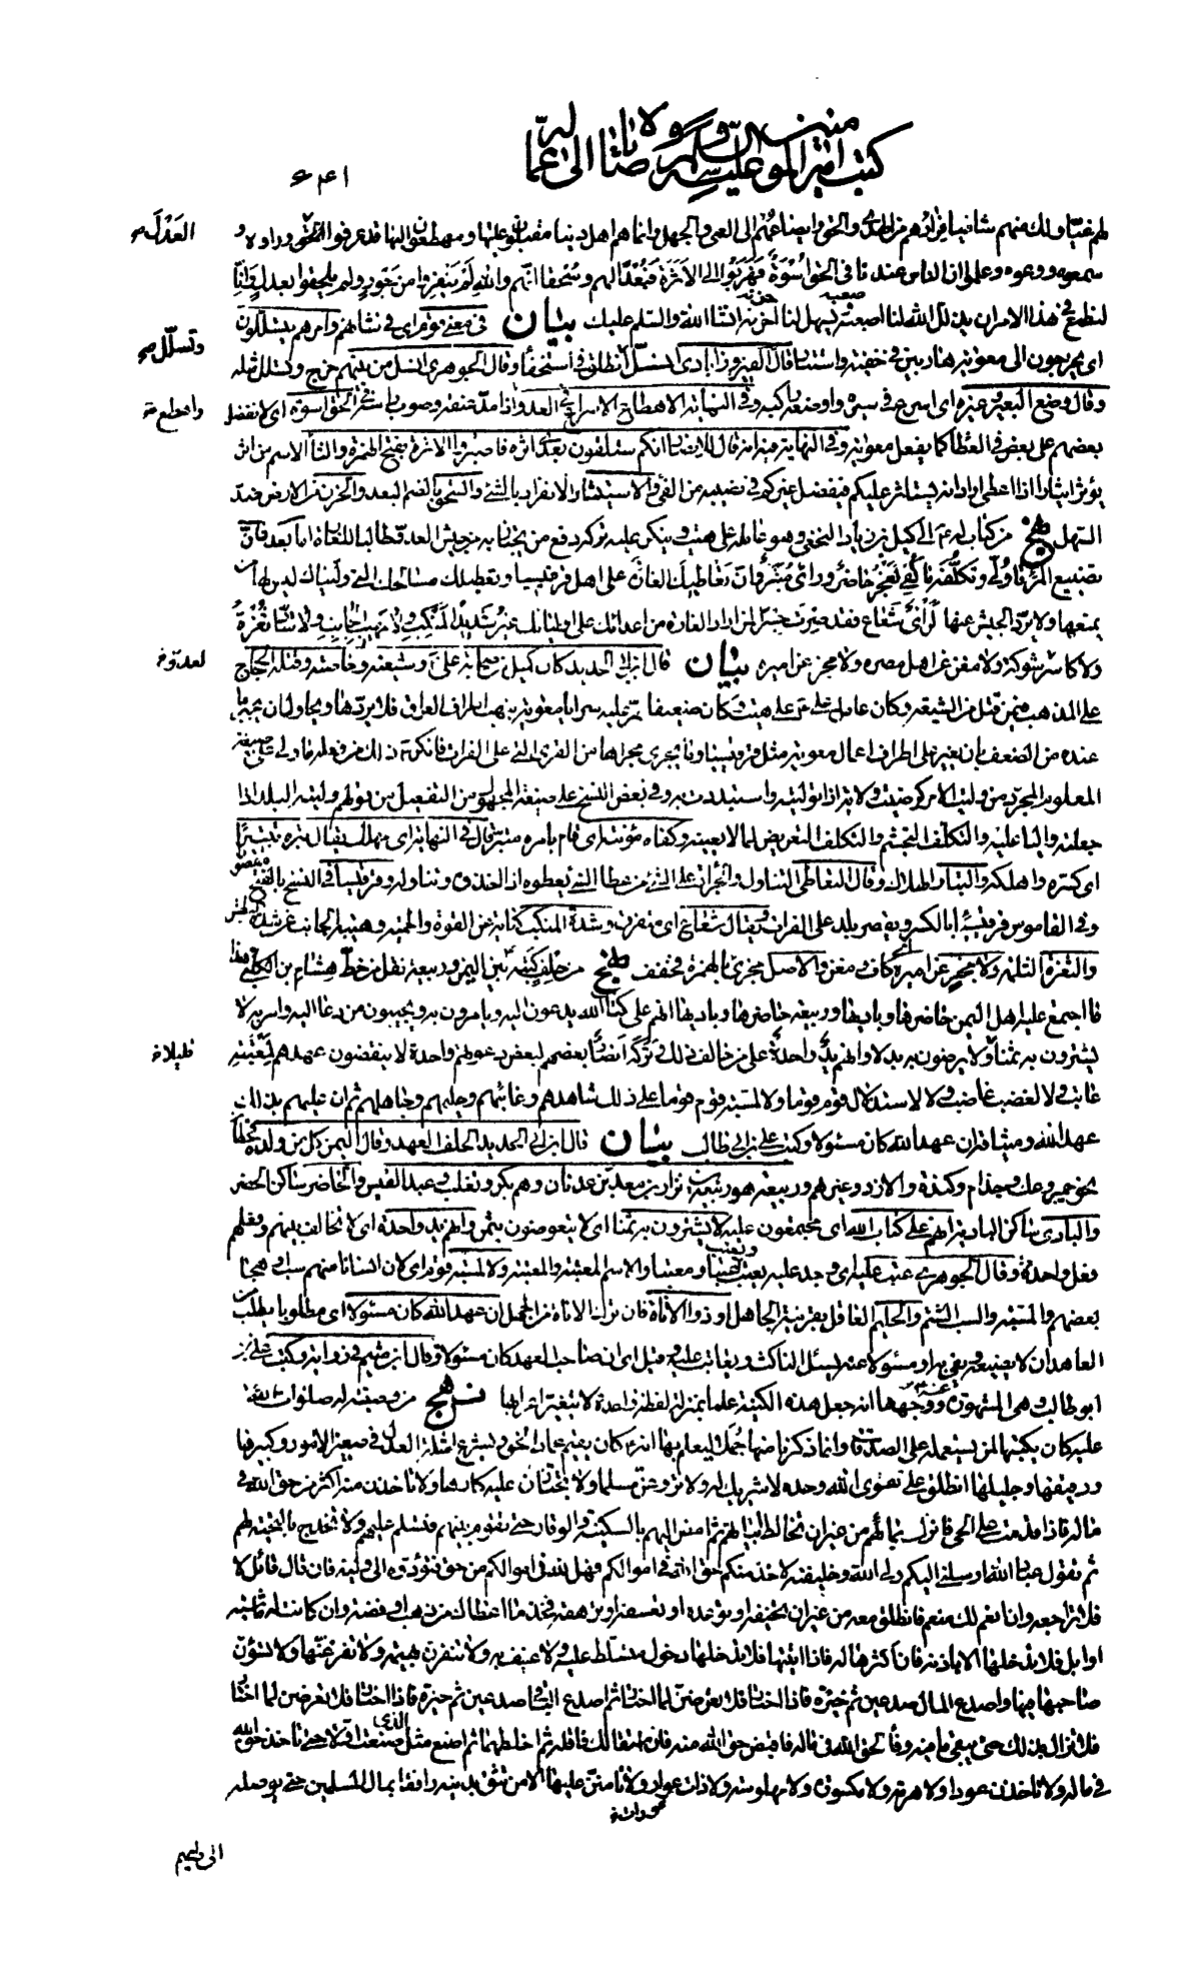 كتب أمير المؤمنين عليه السلام ووصاياه إلى عماله
٦٤١
لهم غيا ولك منهم شافيا فرارهم من الهدى والحق وإيضاعهم إلى العمى والجهل وإنما هم أهل دنيا مقبلون عليها ومهطعون إليها قد عرفوا العدل ورأوه و
سمعوه ووعوه وعلموا أن الناس عندنا في الحق أسوة فهربوا إلى الأثرة فبعدا لهم وسحقا إنهم والله لم ينفروا من جور ولم يلحقوا بعدل وإنا
لنطمع في هذا الأمر أن يذلل الله لنا أصعبه ويسهل لنا أحزنه إن شاء الله والسلم عليك بيان في معنى قوم أي في شأنهم وأمرهم يتسللون
أي يخرجون إلى معوية هاربين في خفية واستتار قال الفيروزآبادي انسل وتسلل انطلق في استخفاء وقال الجوهري انسل من بينهم خرج وتسلل مثله
وقال وضع البعير وغيره أي أسرع في سيره وأوضعه راكبه وفي النهاية الاهطاع الاسراع في العدو وأهطع إذا مد عنقه وصوب رأسه في الحق أسوة أي لا نفضل
بعضهم على بعض في العطاء كما يفعل معوية وفي النهاية فيه أنه قال للأنصار إنكم ستلقون بعدي أثرة فاصبروا الأثرة بفتح الهمزة والثاء الاسم من آثر
يؤثر إيثارا إذا أعطى أراد أنه يستأثر عليكم فيفضل غيركم في نصيبه من الفيء والاستيثار الانفراد بالشيء والسحق بالضم البعد والحزن من الأرض ضد
السهل نهج من كتاب له ع إلى كميل بن زياد النخعي وهو عامله على هيت وينكر عليه تركه دفع من يجتاز به من جيش العدو طالبا للغارة أما بعد فإن
تضييع المرء ما ولي وتكلفه ما كفي لعجز حاضر ورأي متبر وإن تعاطيك الغارة على أهل قرقيسيا وتعطيلك مسالحك التي وليناك ليس بها من
يمنعها ولا يرد الجيش عنها لرأي شعاع فقد صرت جسرا لمن أراد الغارة من أعدائك على أوليائك غير شديد المنكب ولا مهيب الجانب ولا ساد ثغرة
ولا كاسر شوكة ولا مغن عن أهل مصره ولا مجز عن أميره بيان قال ابن أبي الحديد كان كميل من صحابة علي ع وشيعته وخاصته وقتله الحجاج
على المذهب فيمن قتل من الشيعة وكان عامل علي ع على هيت وكان ضعيفا تمر عليه سرايا معوية ينهب أطراف العراق فلا يردها ويحاول أن يجبر ما
عنده من الضعف بأن يغير على أطراف أعمال معوية مثل قرقيسيا وما يجري مجراها من القرى التي على الفرات فأنكر ع ذلك من فعله ما ولي على صيغة
المعلوم المجرد من وليت الأمر كرضيت ولاية إذا توليته واستبددت به وفي بعض النسخ على صيغة المجهول من التفعيل من قولهم وليته البلد إذا
جعلته واليا عليه والتكلف التجشم والتكلف التعريض لما لا يعنيه وكفاه مؤنته أي قام بأمره متبر قال في النهاية أي مهلك يقال تبره تتبيرا
أي كسره وأهلكه والتبار الهلاك وقال التعاطي التناول والجرأة على الشيء من عطا الشيء يعطوه إذا أخذه وتناوله وقرقيسا في النسخ بالفتح مقصورا
وفي القاموس قرقيسياء بالكسر ويقصر بلد على الفرات ويقال شعاع أي متفرق وشدة المنكب كناية عن القوة والحمية وهيبة الجانب عن شدة البطش
والثغرة الثلمة ولا مجز عن أميره أي كاف مغن والأصل مجزئ بالهمزة فخفف نهج من حلف كتبه ع بين اليمن وربيعة نقل من خط هشام بن الكلبي هذا
ما اجتمع عليه أهل اليمن حاضرها وباديها وربيعة حاضرها وباديها أنهم على كتاب الله يدعون إليه ويأمرون به ويجيبون من دعا إليه وأمر به لا
يشترون به ثمنا ولا يرضون به بدلا وأنهم يد واحدة على من خالف ذلك وتركه أنصار بعضهم لبعض دعوتهم واحدة لا ينقضون عهدهم لمعتبة
عاتب ولا لغضب غاضب ولا لاستذلال قوم قوما ولا لمسبة قوم قوما على ذلك شاهدهم وغائبهم وحليمهم وجاهلهم ثم إن عليهم بذلك
عهد الله وميثاقه إن عهد الله كان مسئولا وكتب علي بن أبي طالب بيان قال ابن أبي الحديد الحلف العهد وقال اليمن كل من ولده قحطان
نحو حمير وعك وجذام وكندة والأزد وغيرهم وربيعة هو ربيعة بن نزار بن معد بن عدنان وهم بكر وتغلب وعبد القيس والحاضر ساكن الحضر
والبادي ساكن البادية أنهم على كتاب الله أي مجتمعون عليه لا يشترون به ثمنا أي لا يتعوضون بثمن وأنهم يد واحدة أي لا تخالف بينهم وفعلهم
فعل واحد وقال الجوهري عتب عليه أي وجد عليه يعتب ويعتب عتبا ومعتبا والاسم المعتبة والمعتبة ولا لمسبة قوم أي لأن إنسانا منهم سب أو هجا
بعضهم والمسبة والسب الشتم والحليم العاقل بقرينة الجاهل أو ذو الأناة فإن ترك الأناة من الجهل إن عهد الله كان مسئولا أي مطلوبا يطلب من
العاهد أن لا يضيعه ويفي به أو مسئولا عنه يسئل الناكث ويعاتب عليه وقيل أي إن صاحب العهد كان مسئولا وقال ابن ميثم في رواية وكتب علي بن
أبو طالب وهي المشهورة عنه ع ووجهها أنه جعل هذه الكنية علما بمنزلة لفظة واحدة لا يتغير إعرابها نهج من وصيته له صلوات الله
عليه كان يكتبها لمن يستعمله على الصدقات وإنما ذكرنا منها جملا ليعلم بها أنه كان يقيم عماد الحق ويشرع أمثلة العدل في صغير الأمور وكبيرها
ودقيقها وجليلها انطلق على تقوى الله وحده لا شريك له ولا تروعن مسلما ولا تجتازن عليه كارها ولا تأخذن منه أكثر من حق الله في
ماله فإذا قدمت على الحي فانزل بمائهم من غير أن تخالط أبياتهم ثم امض إليهم بالسكينة والوقار حتى تقوم بينهم فتسلم عليهم ولا تخدج بالتحية لهم
ثم تقول عباد الله أرسلني إليكم ولي الله وخليفته لآخذ منكم حق الله في أموالكم فهل لله في أموالكم من حق فتؤدوه إلى وليه فإن قال قائل لا
فلا تراجعه وإن أنعم لك منعم فانطلق معه من غير أن تخيفه أو توعده أو تعسفه أو ترهقه فخذ ما أعطاك من ذهب أو فضة وإن كانت له ماشية
أو إبل فلا تدخلها إلا بإذنه فإن أكثرها له فإذا أتيتها فلا تدخلها دخول متسلط عليه ولا عنيف به ولا تنفرن بهيمة ولا تفزعنها ولا تسوءن
صاحبها فيها واصدع المال صدعين ثم خيره فإذا اختار فلا تعرضن لما اختار ثم اصدع الباقي صدعين ثم خيره فإذا اختار فلا تعرضن لما اختار
فلا تزال بذلك حتى يبقى ما فيه وفاء لحق الله في ماله فاقبض حق الله منه فإن استقالك فأقله ثم اخلطهما ثم اصنع مثل الذي صنعت أولا حتى تأخذ حق الله
في ماله ولا تأخذن عودا ولا هرمة ولا مكسورة ولا مهلوسة ولا ذات عوار ولا تأمنن عليها إلا من تثق بدينه رافقا بمال المسلمين حتى يوصله
إلى وليهم